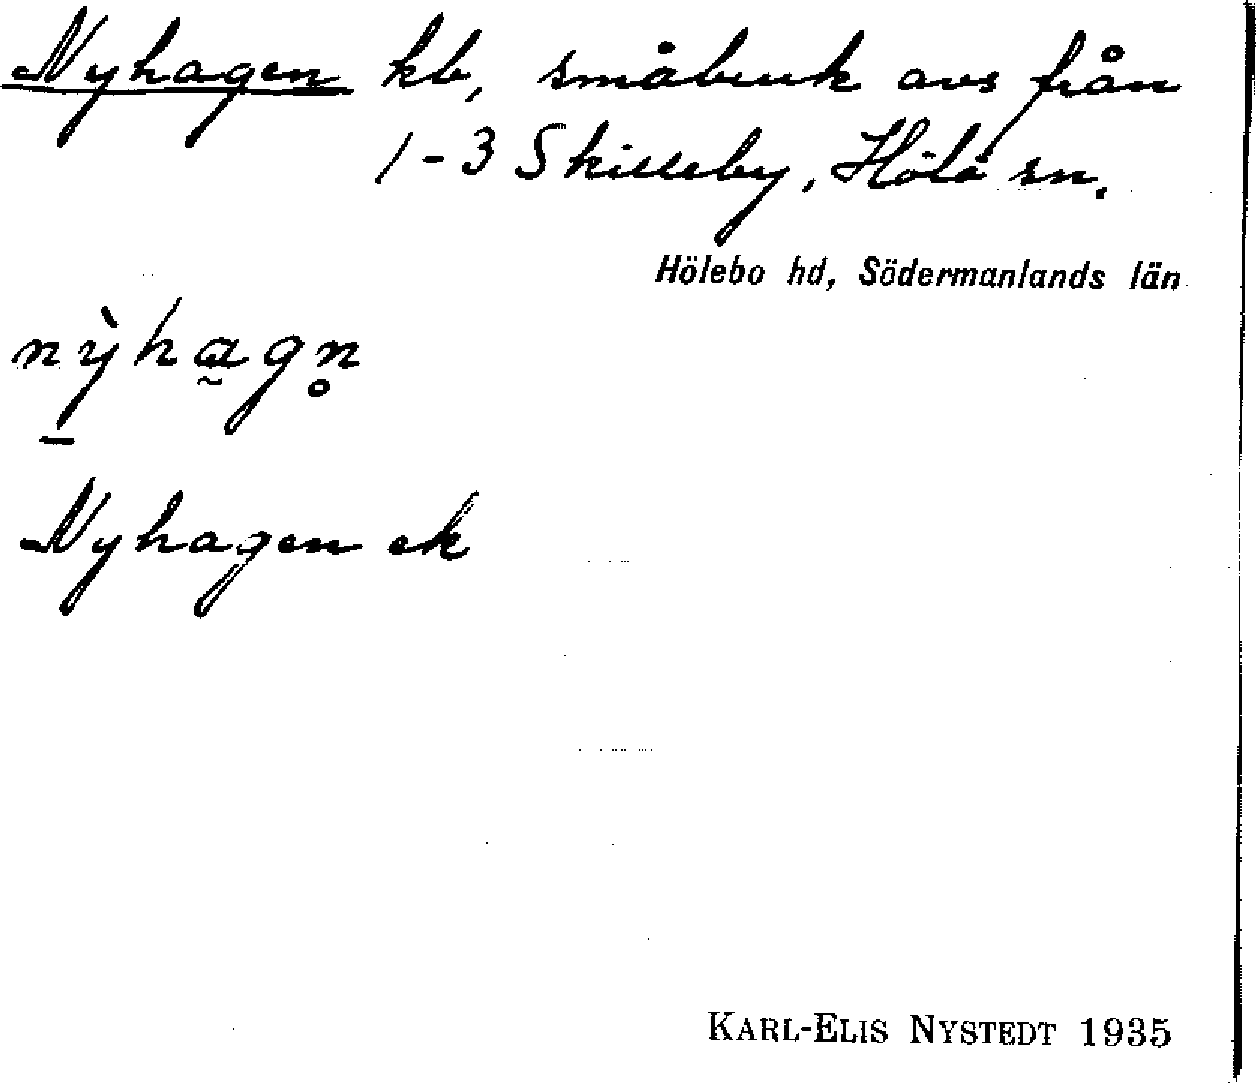 Nyhagen kb, småbruk avs från
1-3 Skilleby, Hölö sn.
Hölebo hd, Södermanlands län
nỳhagn̥
Nyhagen ek
KARL-ELIS NYSTEDT 1935